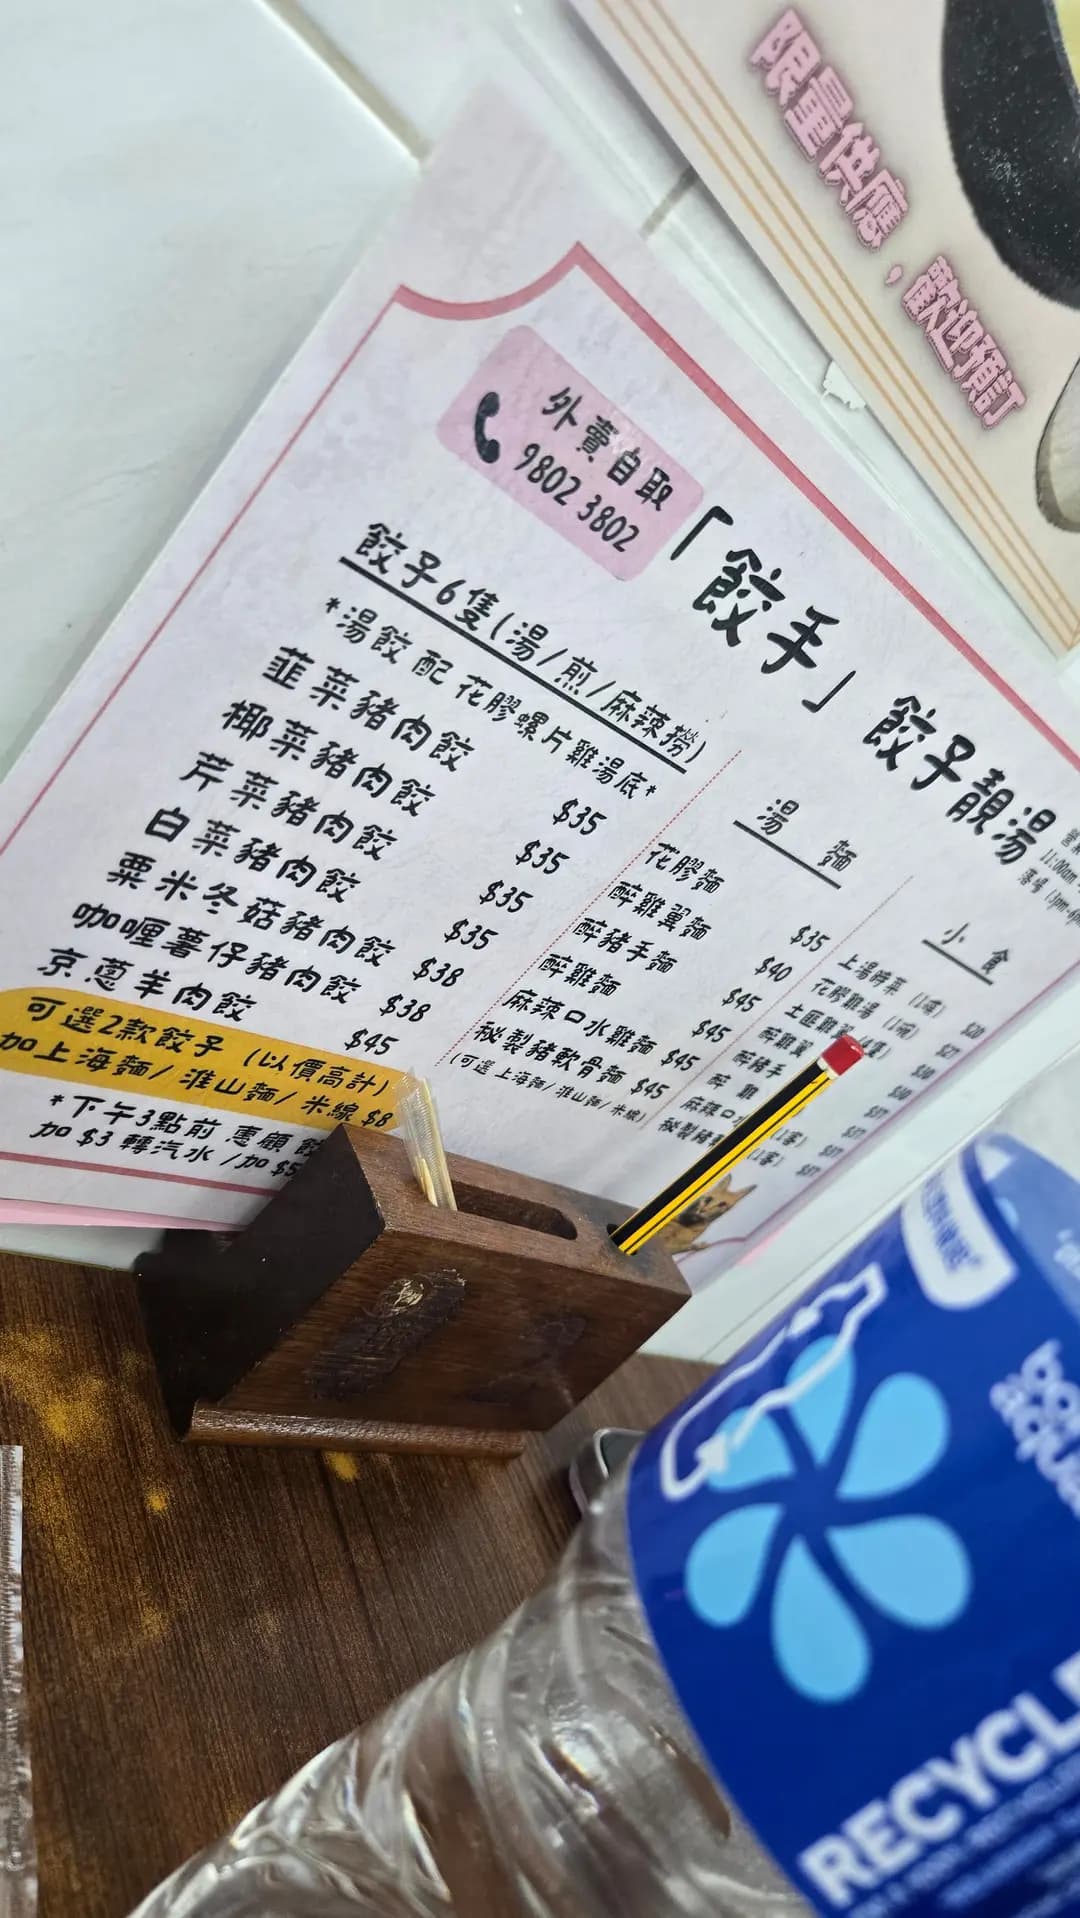 限量供應，歡迎預訂
外賣自取
9802 3802
「餃手」餃子靚湯
餃子6隻(湯/煎/麻辣撈)
*湯餃 配 花膠螺片雞湯底*
韮菜豬肉餃 $35
椰菜豬肉餃 $35
芹菜豬肉餃 $35
白菜豬肉餃 $35
粟米冬菇豬肉餃 $38
咖喱薯仔豬肉餃 $38
京蔥羊肉餃 $45
可選2款餃子 (以價高計)
加上海麵/ 淮山麵/ 米線 $8
*下午3點前 惠顧
加 $3 轉汽水 /加 $5
湯 麵
花膠麵 $35
醉雞翼麵 $40
醉豬手麵 $45
醉雞麵 $45
麻辣口水雞麵 $45
秘製豬軟骨麵 $45
(可選 上海麵/ 淮山麵/ 米線)
11:00am
小 食
上湯時菜
花膠雞湯
醉雞翼
醉豬手
醉 雞
麻辣口
秘製豬
(1客)
(1客)
bon
aqua
RECYCLE